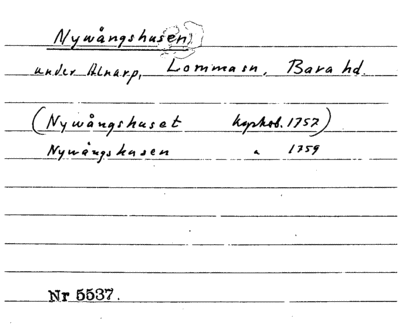 Nywångshusen
under Alnarp, Lomma sn, Bara hd.
(Nywångshuset kopkob. 1757)
Nywångshusen " 1759
Nr 5537.